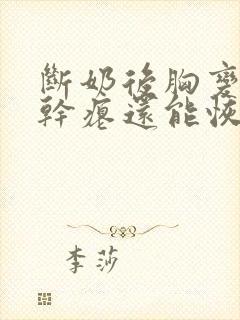 斷奶後胸變
幹瘪還能恢
李莎